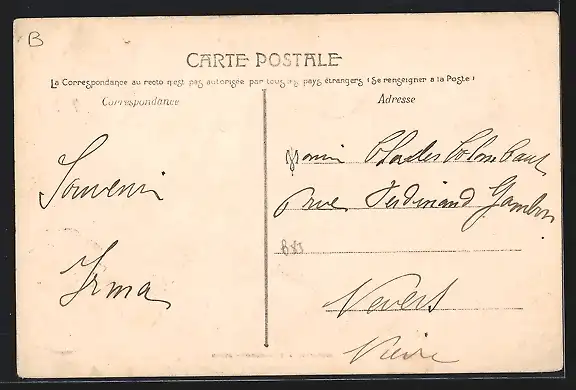 B
CARTE POSTALE
La Correspondance au recto n'est pas autorisée par tous les pays étrangers (Se renseigner à la Poste)
Correspondance
Adresse
Souvenir
Irma
Charles
rue Ferdinand Gambon
B85
Nevers
Nièvre